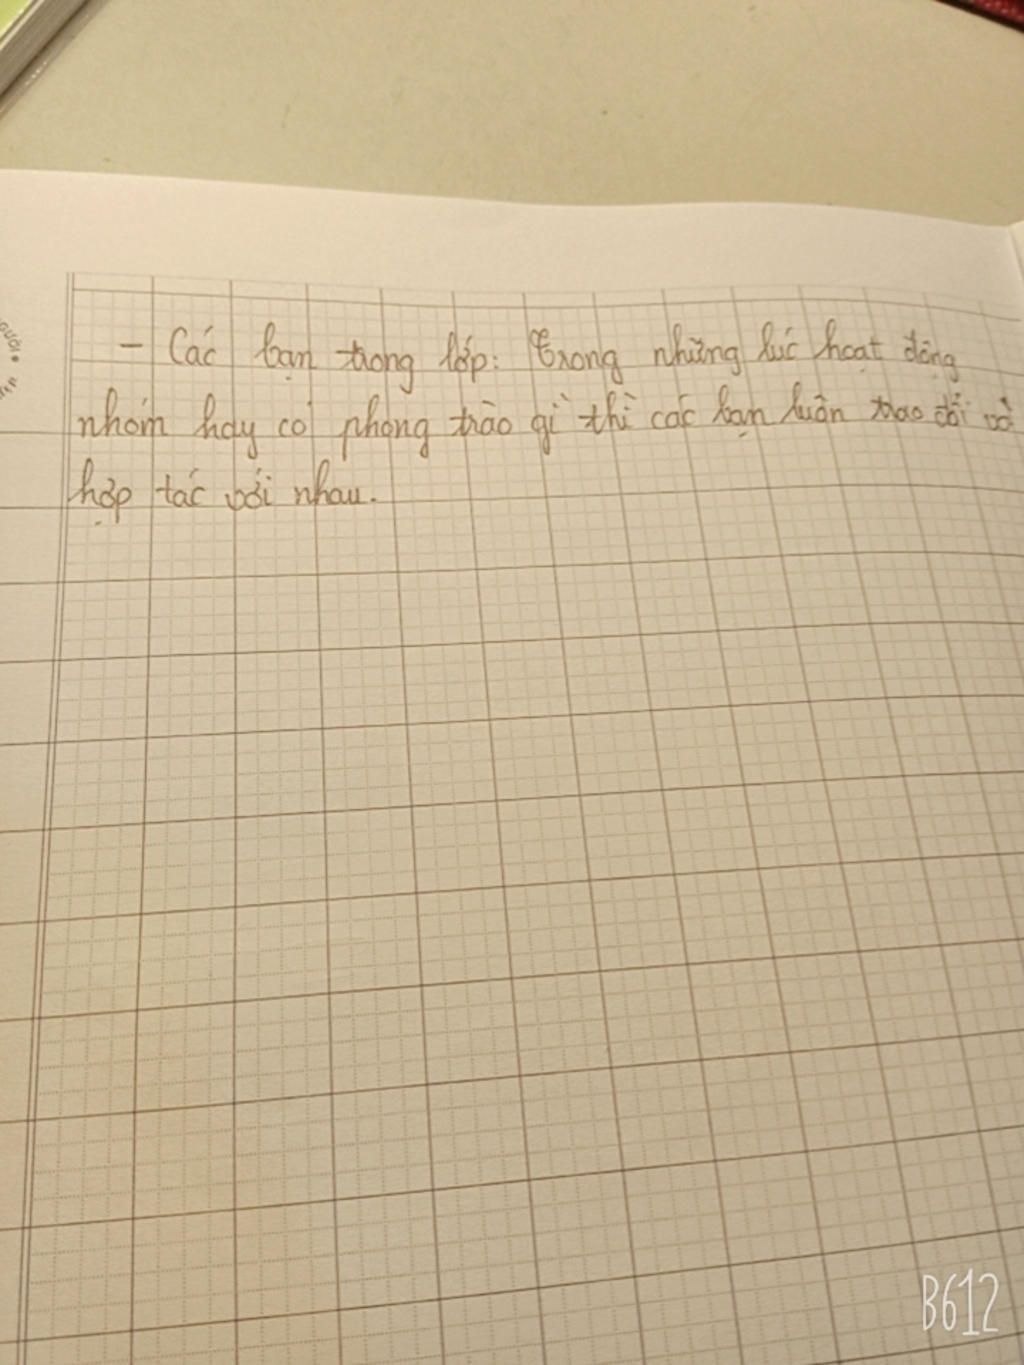 - Các bạn trong lớp: Trong những lúc hoạt động
nhóm hay có phong trào gì thì các bạn luôn trao đổi và
hợp tác với nhau.
B612